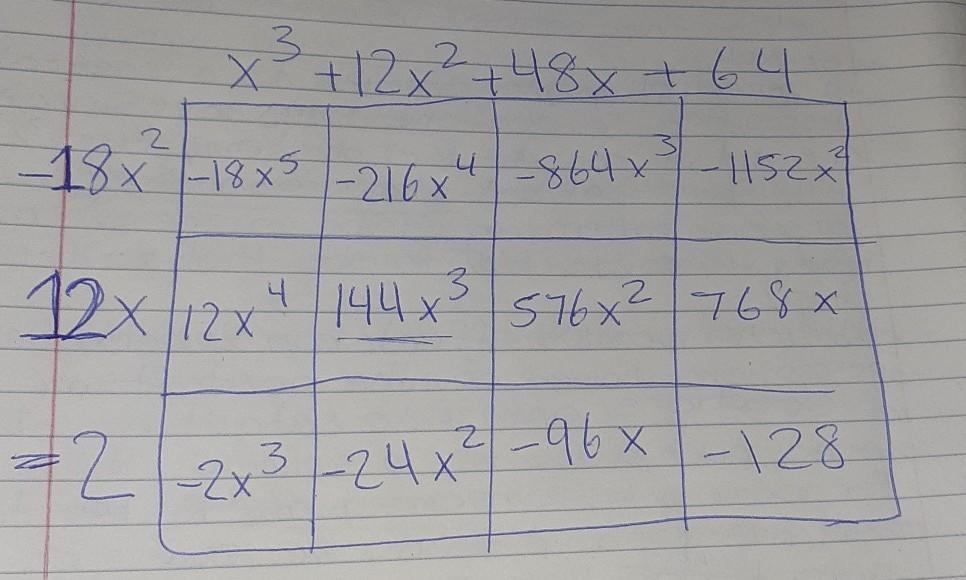 x³ + 12x² + 48x + 64
-18x² -18x⁵ -216x⁴ -864x³ -1152x²
12x 12x⁴ 144x³ 576x² 768x
-2 -2x³ -24x² -96x -128